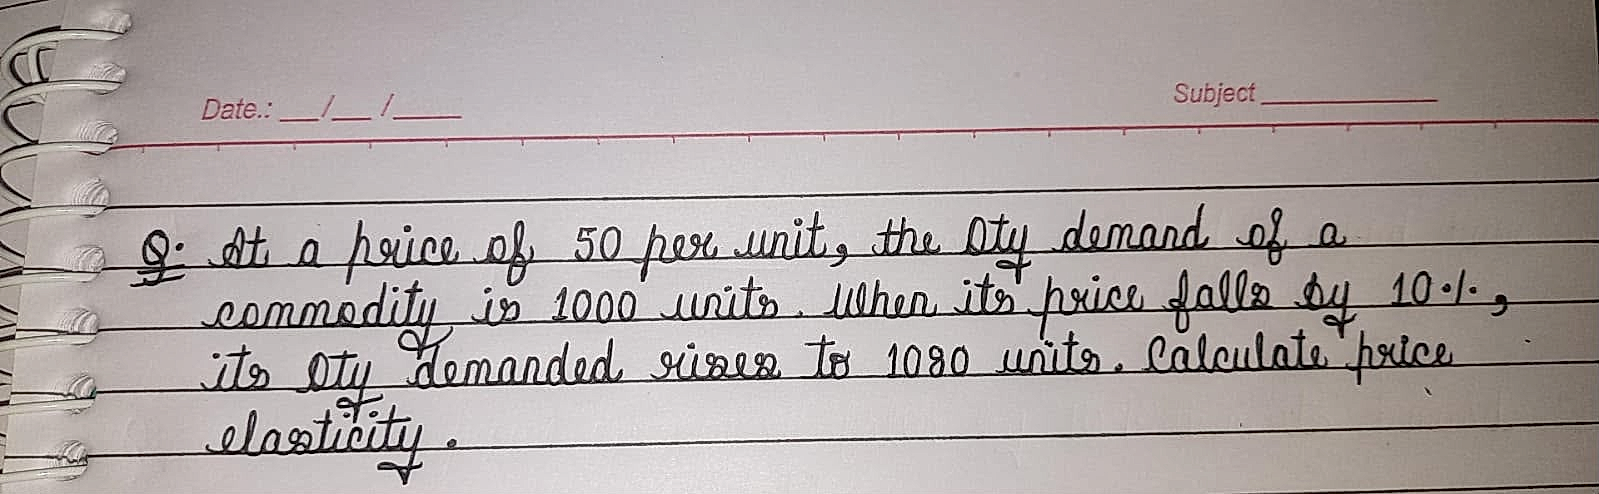 Date.: __/__/____
Subject __________
Q: At a price of 50 per unit, the Qty demand of a
commodity is 1000 units. When its price falls by 10%,
its Qty demanded rises to 1080 units. Calculate price
elasticity.